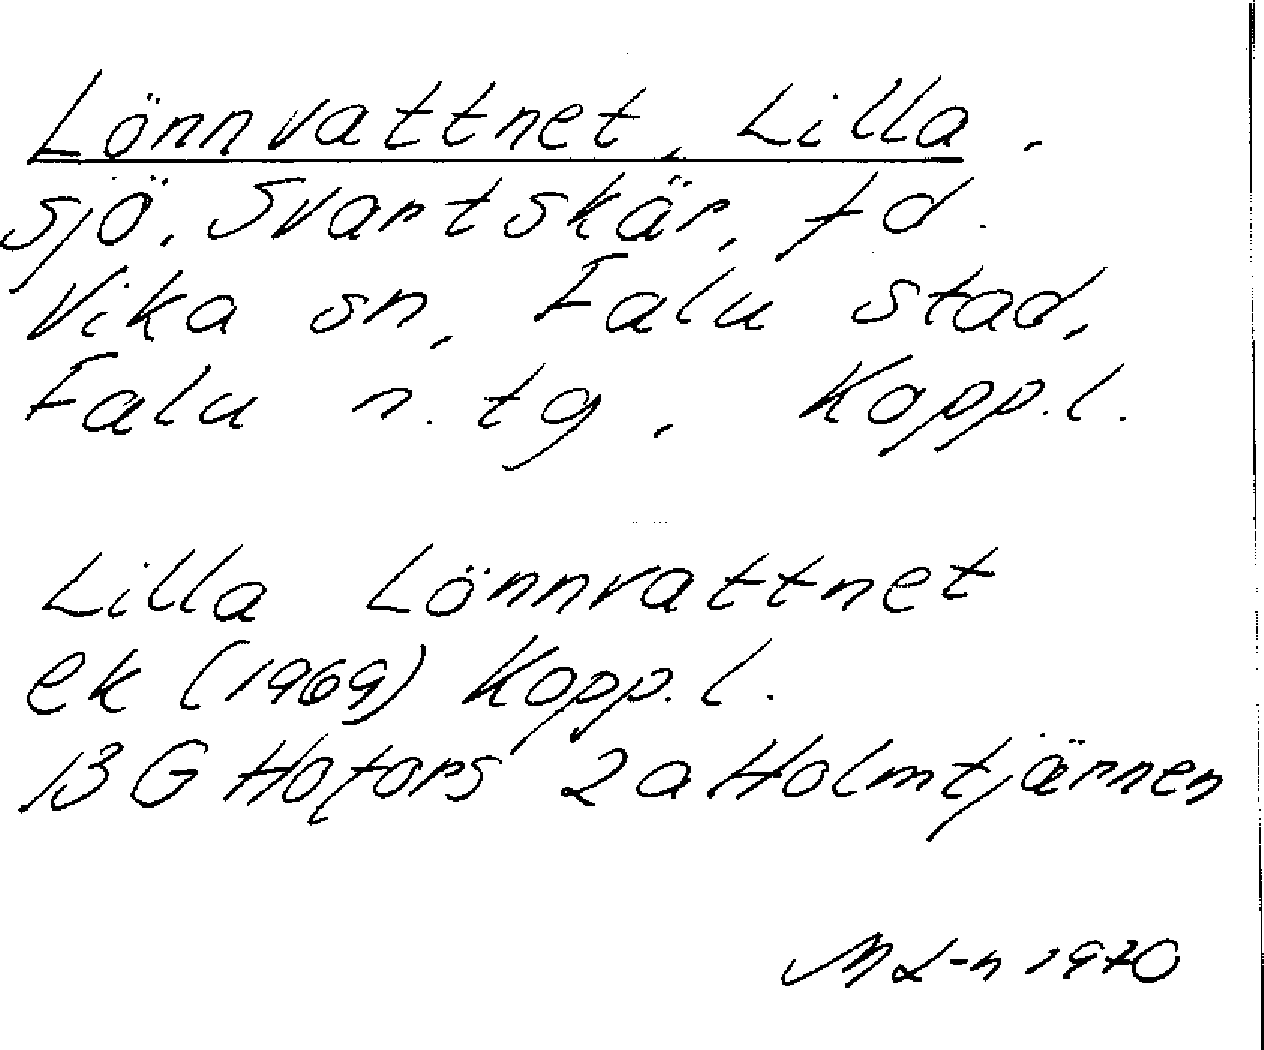 Lönnvattnet, Lilla,
sjö, Svartskär, fd.
Vika sn, Falu stad,
Falu n. tg, Kopp.l.
Lilla Lönnvattnet
ek (1969) Kopp.l.
13 G Hofors 2a Holmtjärnen
M L-n 1970